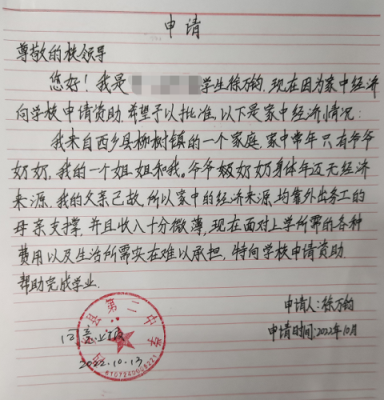 申请
尊敬的校领导
您好！我是 学生徐万钧，现在因为家中经济
向学校申请资助。希望予以批准。以下是家中经济情况：
我来自西乡县柳树镇的一个家庭，家中常年只有爷爷
奶奶，我的一个姐姐和我，爷爷奶奶身体年迈无经济
来源，我的父亲已故，所以家中的经济来源，均靠外出务工的
母亲支撑，并且收入十分微薄，现在面对上学所需的各种
费用以及生活所需实在难以承担，特向学校申请资助
帮助完成学业。
申请人：徐万钧
申请时间：2022年10月
县第二中学
同意
2022.10.13